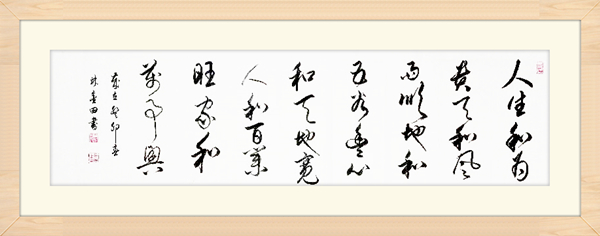 人生和為
貴天和風
雨順地和
五谷豐心
和天地寬
人和百業
旺家和
萬事興
歲在癸卯春
田書